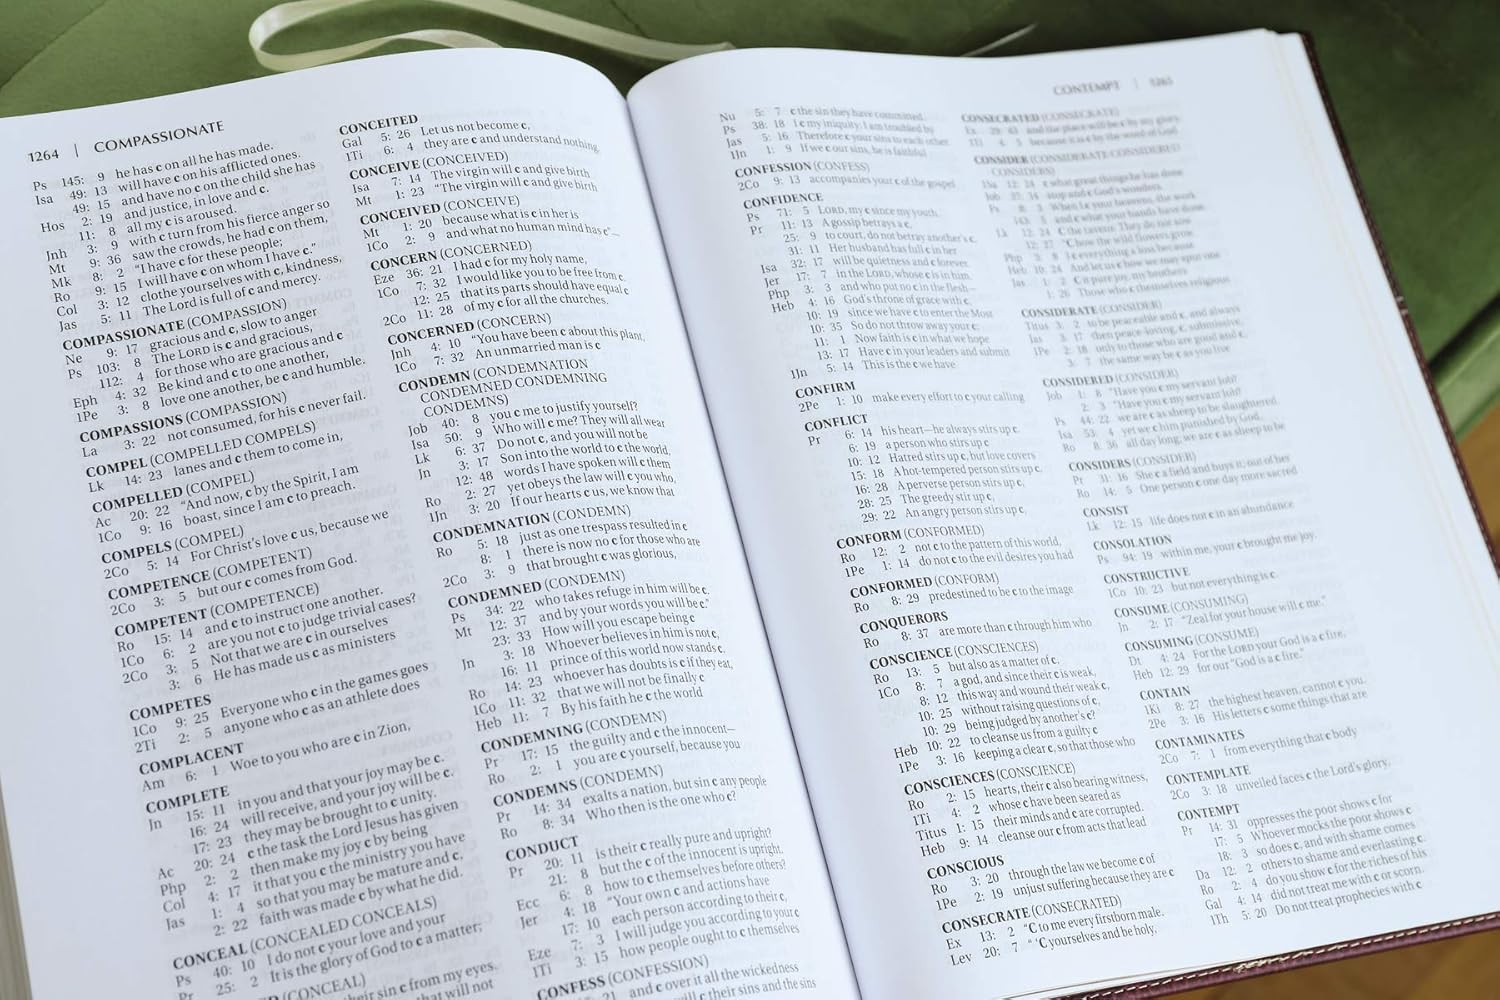 1264 | COMPASSIONATE
Ps 145: 9 he has c on all he has made.
Isa 49: 13 will have c on his afflicted ones.
49: 15 and have no c on the child she has
Hos 2: 19 and justice, in love and c.
11: 8 all my c is aroused.
Jnh 3: 9 with c turn from his fierce anger so
Mt 9: 36 saw the crowds, he had c on them,
Mk 8: 2 "I have c for these people;
Ro 9: 15 I will have c on whom I have c."
Col 3: 12 clothe yourselves with c, kindness,
Jas 5: 11 The Lord is full of c and mercy.
COMPASSIONATE (COMPASSION)
Ne 9: 17 gracious and c, slow to anger
Ps 103: 8 The LORD is c and gracious,
112: 4 for those who are gracious and c
Eph 4: 32 Be kind and c to one another,
1Pe 3: 8 love one another, be c and humble.
COMPASSIONS (COMPASSION)
La 3: 22 not consumed, for his c never fail.
COMPEL (COMPELLED COMPELS)
Lk 14: 23 lanes and c them to come in,
COMPELLED (COMPEL)
Ac 20: 22 "And now, c by the Spirit, I am
1Co 9: 16 boast, since I am c to preach.
COMPELS (COMPEL)
2Co 5: 14 For Christ's love c us, because we
COMPETENCE (COMPETENT)
2Co 3: 5 but our c comes from God.
COMPETENT (COMPETENCE)
Ro 15: 14 and c to instruct one another.
1Co 6: 2 are you not c to judge trivial cases?
2Co 3: 5 Not that we are c in ourselves
3: 6 He has made us c as ministers
COMPETES
1Co 9: 25 Everyone who c in the games goes
2Ti 2: 5 anyone who c as an athlete does
COMPLACENT
Am 6: 1 Woe to you who are c in Zion,
COMPLETE
Jn 15: 11 in you and that your joy may be c.
16: 24 will receive, and your joy will be c.
17: 23 they may be brought to c unity.
Ac 20: 24 c the task the Lord Jesus has given
Php 2: 2 then make my joy c by being
Col 4: 17 it that you c the ministry you have
Jas 1: 4 so that you may be mature and c,
2: 22 faith was made c by what he did.
CONCEAL (CONCEALED CONCEALS)
Ps 40: 10 I do not c your love and your
Pr 25: 2 It is the glory of God to c a matter;
(CONCEAL)
their sin c from my eyes.
CONCEITED
Gal 5: 26 Let us not become c,
1Ti 6: 4 they are c and understand nothing.
CONCEIVE (CONCEIVED)
Isa 7: 14 The virgin will c and give birth
Mt 1: 23 "The virgin will c and give birth
CONCEIVED (CONCEIVE)
Mt 1: 20 because what is c in her is
1Co 2: 9 and what no human mind has c"—
CONCERN (CONCERNED)
Eze 36: 21 I had c for my holy name,
1Co 7: 32 I would like you to be free from c.
12: 25 that its parts should have equal c
2Co 11: 28 of my c for all the churches.
CONCERNED (CONCERN)
Jnh 4: 10 "You have been c about this plant,
1Co 7: 32 An unmarried man is c
CONDEMN (CONDEMNATION
CONDEMNED CONDEMNING
CONDEMNS)
Job 40: 8 you c me to justify yourself?
Isa 50: 9 Who will c me? They will all wear
Lk 6: 37 Do not c, and you will not be
Jn 3: 17 Son into the world to c the world,
12: 48 words I have spoken will c them
Ro 2: 27 yet obeys the law will c you who,
1Jn 3: 20 If our hearts c us, we know that
CONDEMNATION (CONDEMN)
Ro 5: 18 just as one trespass resulted in c
8: 1 there is now no c for those who are
2Co 3: 9 that brought c was glorious,
CONDEMNED (CONDEMN)
Ps 34: 22 who takes refuge in him will be c.
Mt 12: 37 and by your words you will be c."
23: 33 How will you escape being c
Jn 3: 18 Whoever believes in him is not c,
16: 11 prince of this world now stands c.
Ro 14: 23 whoever has doubts is c if they eat,
1Co 11: 32 that we will not be finally c
Heb 11: 7 By his faith he c the world
CONDEMNING (CONDEMN)
Pr 17: 15 the guilty and c the innocent—
Ro 2: 1 you are c yourself, because you
CONDEMNS (CONDEMN)
Pr 14: 34 exalts a nation, but sin c any people
Ro 8: 34 Who then is the one who c?
CONDUCT
Pr 20: 11 is their c really pure and upright?
21: 8 but the c of the innocent is upright.
Ecc 6: 8 how to c themselves before others?
Jer 4: 18 "Your own c and actions have
17: 10 each person according to their c,
Eze 7: 3 I will judge you according to your c
1Ti 3: 15 how people ought to c themselves
CONFESS (CONFESSION)
21 and c over it all the wickedness
c their sins and the sins
CONTEMPT | 1265
Nu 5: 7 c the sin they have committed.
Ps 38: 18 I c my iniquity; I am troubled by
Jas 5: 16 Therefore c your sins to each other
1Jn 1: 9 If we c our sins, he is faithful
CONFESSION (CONFESS)
2Co 9: 13 accompanies your c of the gospel
CONFIDENCE
Ps 71: 5 LORD, my c since my youth.
Pr 11: 13 A gossip betrays a c,
25: 9 to court, do not betray another's c,
31: 11 Her husband has full c in her
Isa 32: 17 will be quietness and c forever.
Jer 17: 7 in the LORD, whose c is in him.
Php 3: 3 and who put no c in the flesh—
Heb 4: 16 God's throne of grace with c,
10: 19 since we have c to enter the Most
10: 35 So do not throw away your c;
11: 1 Now faith is c in what we hope
13: 17 Have c in your leaders and submit
1Jn 5: 14 This is the c we have
CONFIRM
2Pe 1: 10 make every effort to c your calling
CONFLICT
Pr 6: 14 his heart—he always stirs up c.
6: 19 a person who stirs up c
10: 12 Hatred stirs up c, but love covers
15: 18 A hot-tempered person stirs up c,
16: 28 A perverse person stirs up c,
28: 25 The greedy stir up c,
29: 22 An angry person stirs up c,
CONFORM (CONFORMED)
Ro 12: 2 not c to the pattern of this world,
1Pe 1: 14 do not c to the evil desires you had
CONFORMED (CONFORM)
Ro 8: 29 predestined to be c to the image
CONQUERORS
Ro 8: 37 are more than c through him who
CONSCIENCE (CONSCIENCES)
Ro 13: 5 but also as a matter of c.
1Co 8: 7 a god, and since their c is weak,
8: 12 this way and wound their weak c,
10: 25 without raising questions of c,
10: 29 being judged by another's c?
Heb 10: 22 to cleanse us from a guilty c
1Pe 3: 16 keeping a clear c, so that those who
CONSCIENCES (CONSCIENCE)
Ro 2: 15 hearts, their c also bearing witness,
1Ti 4: 2 whose c have been seared as
Titus 1: 15 their minds and c are corrupted.
Heb 9: 14 cleanse our c from acts that lead
CONSCIOUS
Ro 3: 20 through the law we become c of
1Pe 2: 19 unjust suffering because they are c
CONSECRATE (CONSECRATED)
Ex 13: 2 "C to me every firstborn male.
Lev 20: 7 " 'C yourselves and be holy,
CONSECRATED (CONSECRATE)
Ex 29: 43 and the place will be c by my glory.
1Ti 4: 5 because it is c by the word of God
CONSIDER (CONSIDERATE CONSIDERED
CONSIDERS)
1Sa 12: 24 c what great things he has done
Job 37: 14 stop and c God's wonders.
Ps 8: 3 When I c your heavens, the work
143: 5 and c what your hands have done.
Lk 12: 24 C the ravens: They do not sow
12: 27 "C how the wild flowers grow.
Php 3: 8 I c everything a loss because
Heb 10: 24 And let us c how we may spur one
Jas 1: 2 C it pure joy, my brothers
1: 26 Those who c themselves religious
CONSIDERATE (CONSIDER)
Titus 3: 2 to be peaceable and c, and always
Jas 3: 17 then peace-loving, c, submissive,
1Pe 2: 18 only to those who are good and c,
3: 7 the same way be c as you live
CONSIDERED (CONSIDER)
Job 1: 8 "Have you c my servant Job?
2: 3 "Have you c my servant Job?
Ps 44: 22 we are c as sheep to be slaughtered.
Isa 53: 4 yet we c him punished by God,
Ro 8: 36 all day long; we are c as sheep to be
CONSIDERS (CONSIDER)
Pr 31: 16 She c a field and buys it; out of her
Ro 14: 5 One person c one day more sacred
CONSIST
Lk 12: 15 life does not c in an abundance
CONSOLATION
Ps 94: 19 within me, your c brought me joy.
CONSTRUCTIVE
1Co 10: 23 but not everything is c.
CONSUME (CONSUMING)
Jn 2: 17 "Zeal for your house will c me."
CONSUMING (CONSUME)
Dt 4: 24 For the LORD your God is a c fire,
Heb 12: 29 for our "God is a c fire."
CONTAIN
1Ki 8: 27 the highest heaven, cannot c you.
2Pe 3: 16 His letters c some things that are
CONTAMINATES
2Co 7: 1 from everything that c body
CONTEMPLATE
2Co 3: 18 unveiled faces c the Lord's glory,
CONTEMPT
Pr 14: 31 oppresses the poor shows c for
17: 5 Whoever mocks the poor shows c
18: 3 so does c, and with shame comes
Da 12: 2 others to shame and everlasting c.
Ro 2: 4 do you show c for the riches of his
Gal 4: 14 did not treat me with c or scorn.
1Th 5: 20 Do not treat prophecies with c